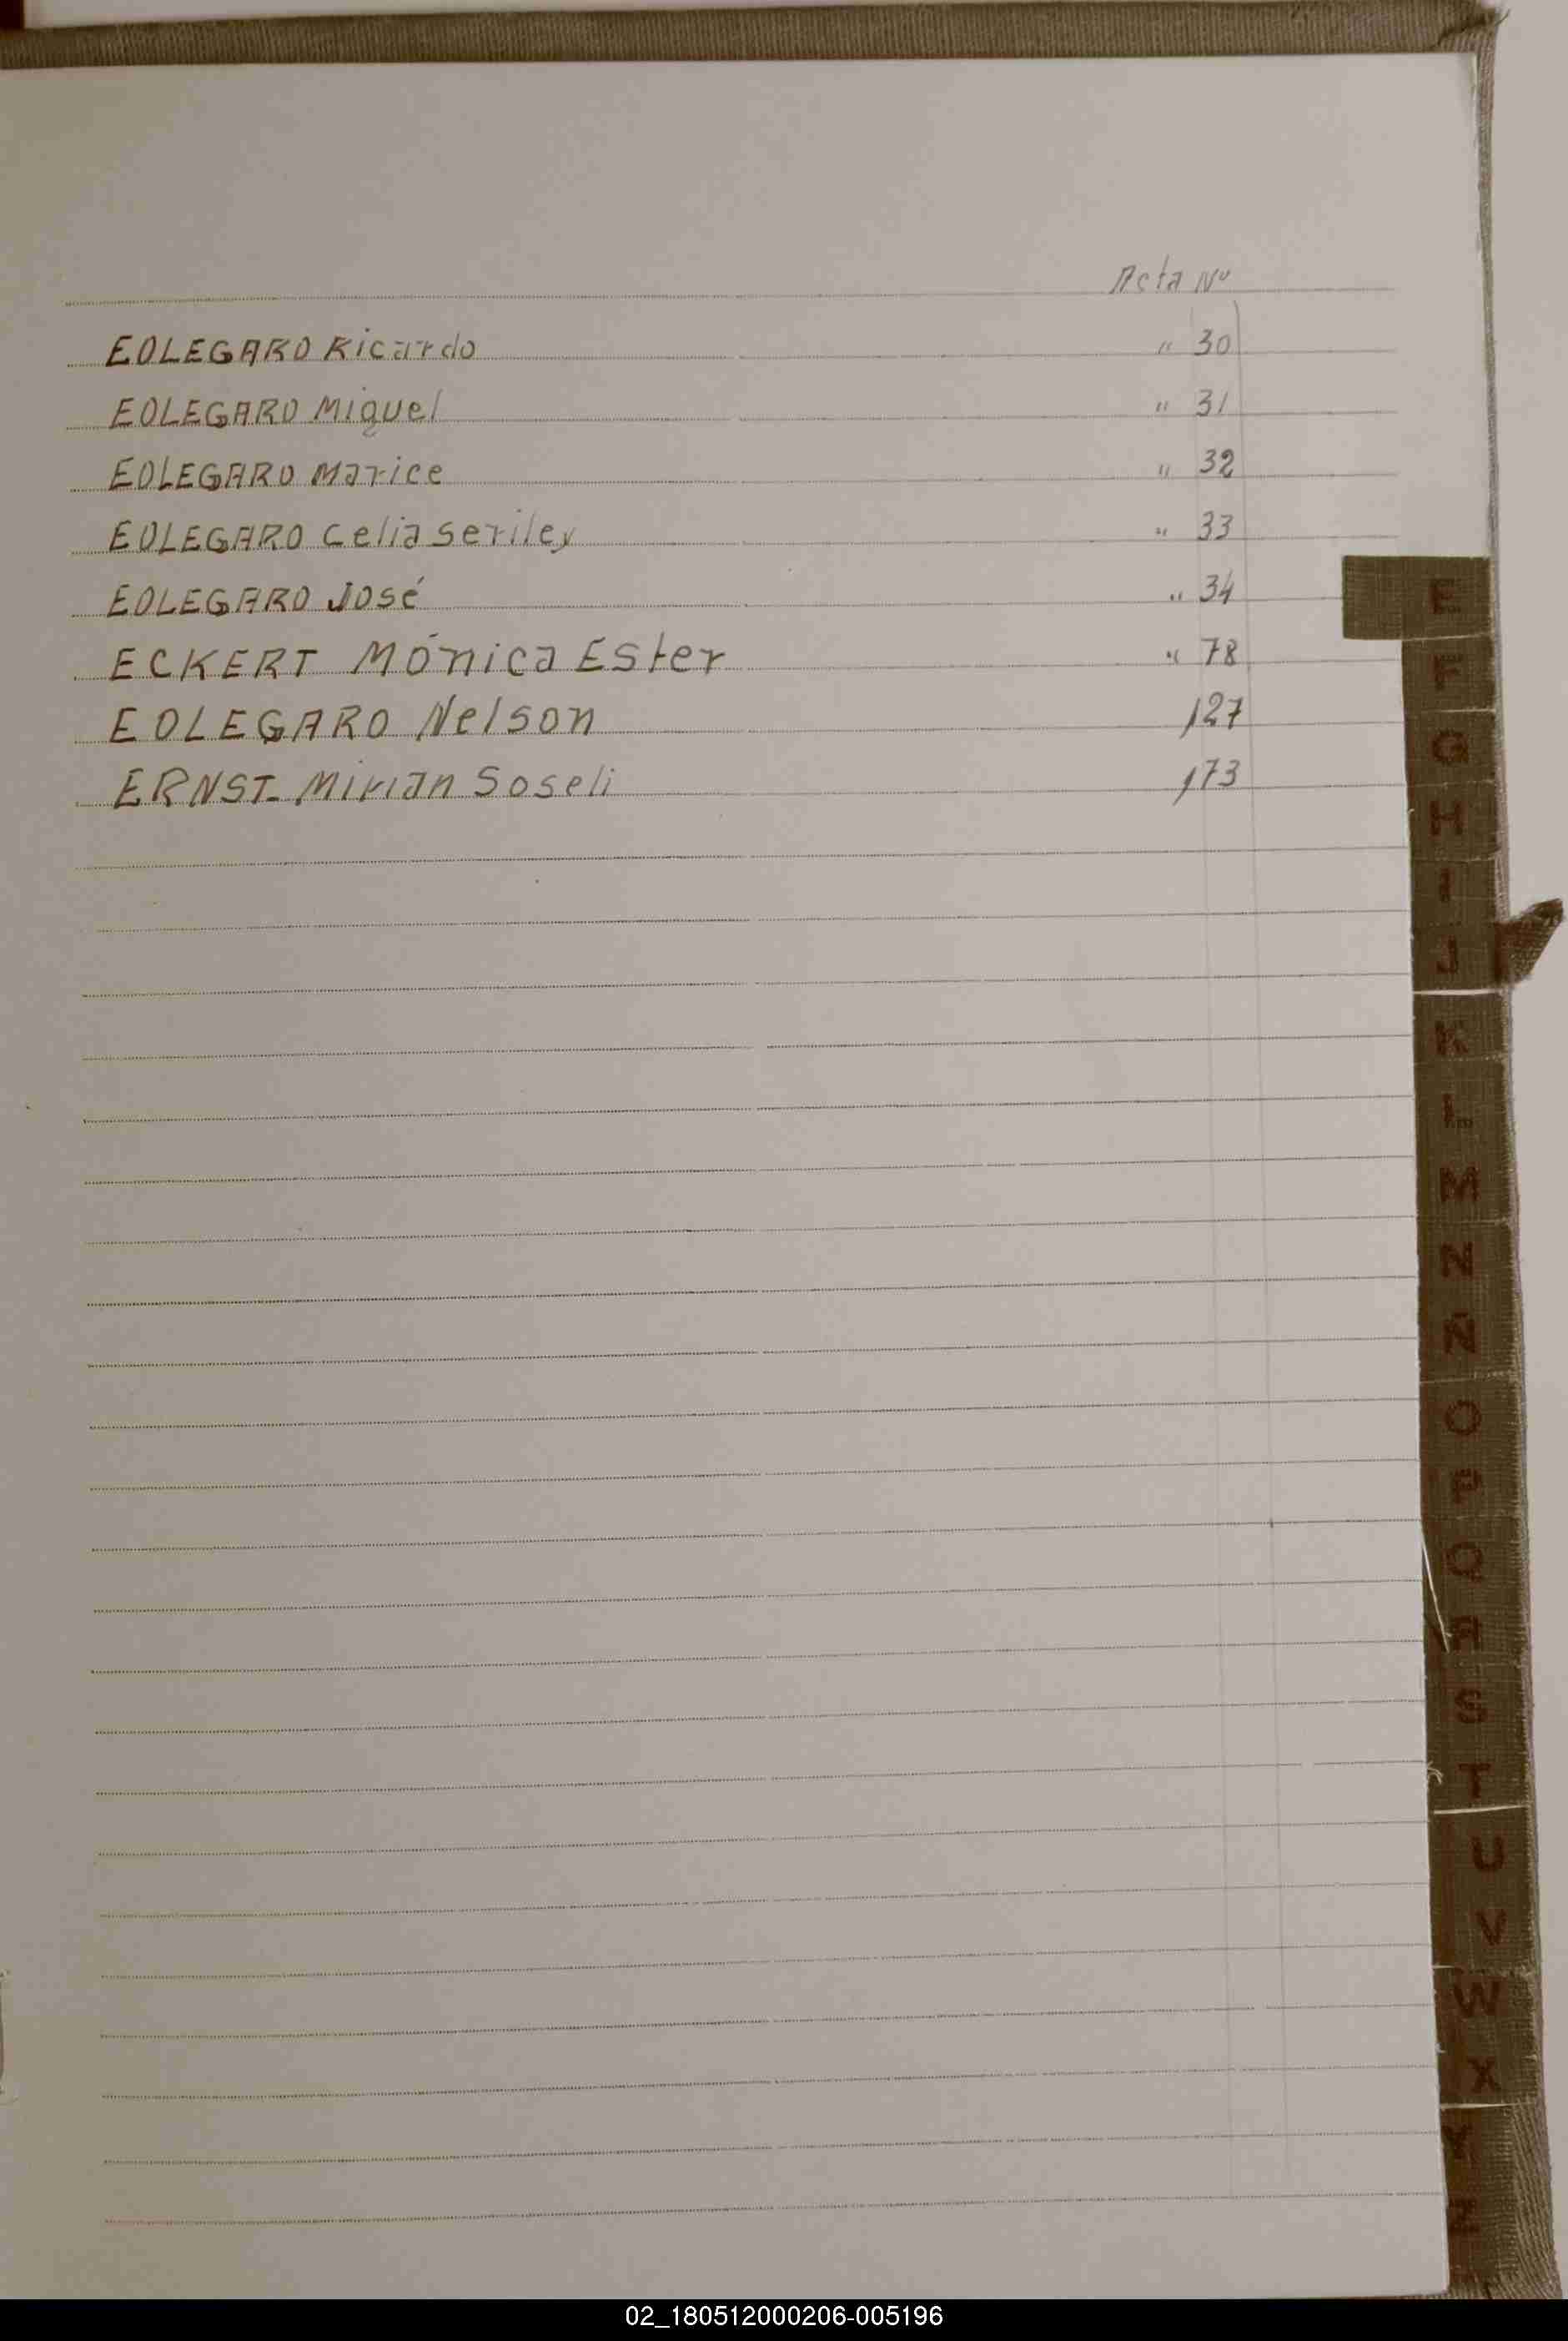 Acta Nº
EOLEGARO Ricardo " 30
EOLEGARO Miguel " 31
EOLEGARO Marice " 32
EOLEGARO Celia Seriley " 33
EOLEGARO José " 34
ECKERT Mónica Ester " 78
EOLEGARO Nelson 127
ERNST Mirian Soseli 173
E
F
G
H
I
J
K
L
M
N
Ñ
O
P
Q
R
S
T
U
V
W
X
Y
Z
02_180512000206-005196